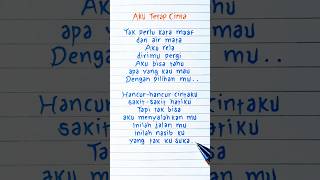 Aku Tetap Cinta
Tak perlu kata maaf
dan air mata
Aku rela
dirimu pergi
Aku bisa tahu
apa yang kau mau
Dengan pilihan mu..
Hancur-hancur cintaku
sakit-sakit hatiku
Tapi tak bisa
aku menyalahkan mu
Inilah jalan mu
Inilah nasib ku
yang tak ku suka.